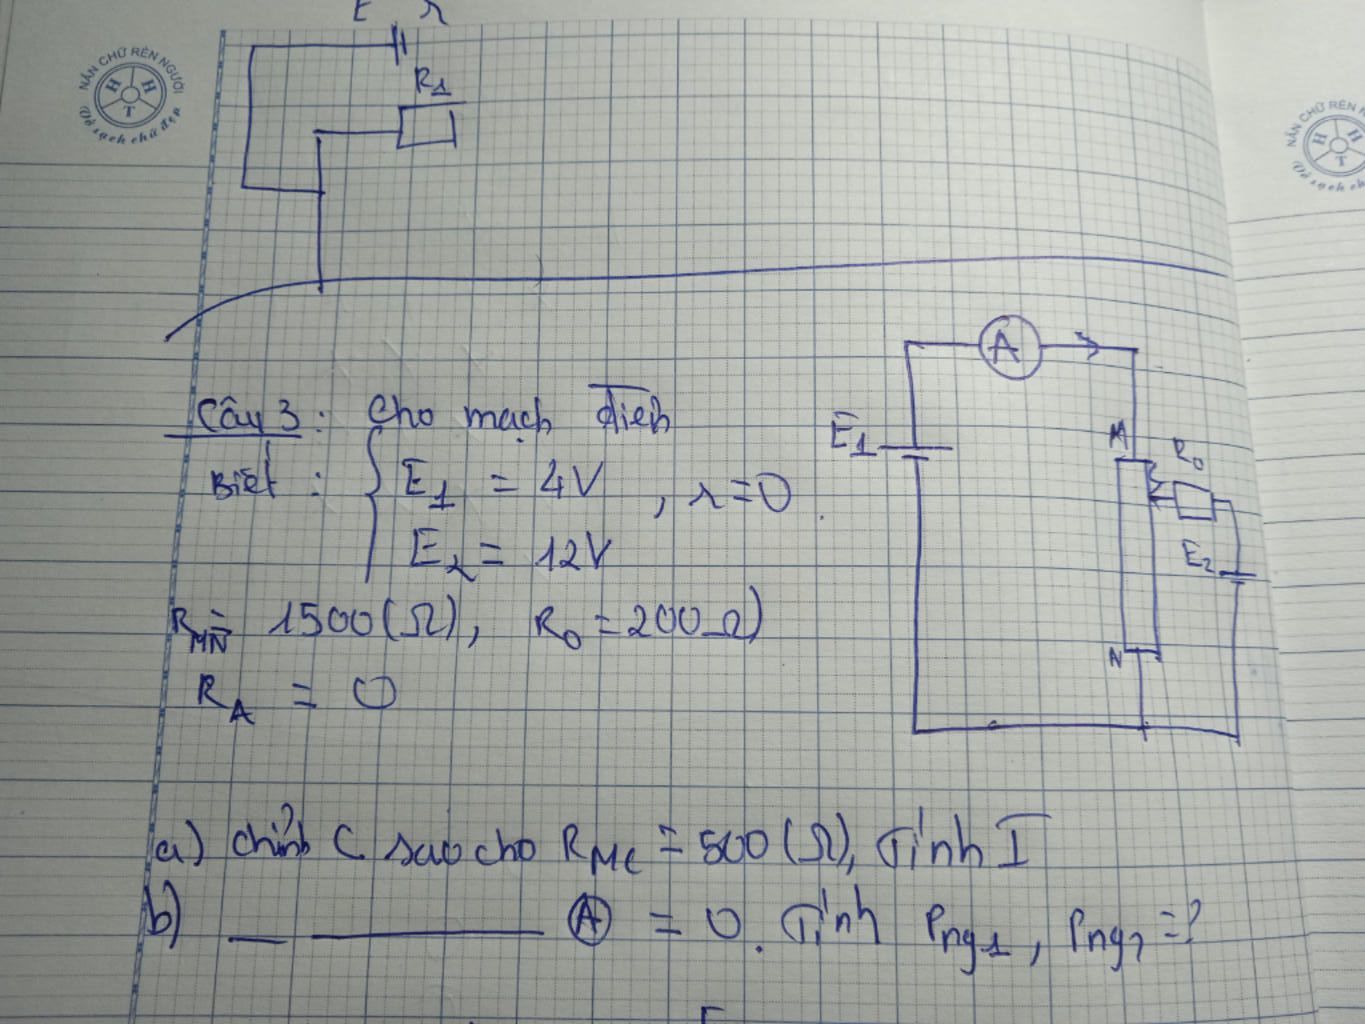 NẮN CHỮ RÈN NGƯỜI
H H T
Vở sạch chữ đẹp
E r
R1
NẮN CHỮ RÈN N
H H T
Vở sạch ch
Câu 3: Cho mạch điện
Biết: E1 = 4V, r = 0
E2 = 12V
RMN = 1500(Ω), R0 = 200Ω)
RA = 0
A
E1
M
R0
E2
N
a) chỉnh C sao cho RMC = 500(Ω), Tính I
b) __ ________ A = 0. Tính Png1, Png2 = ?